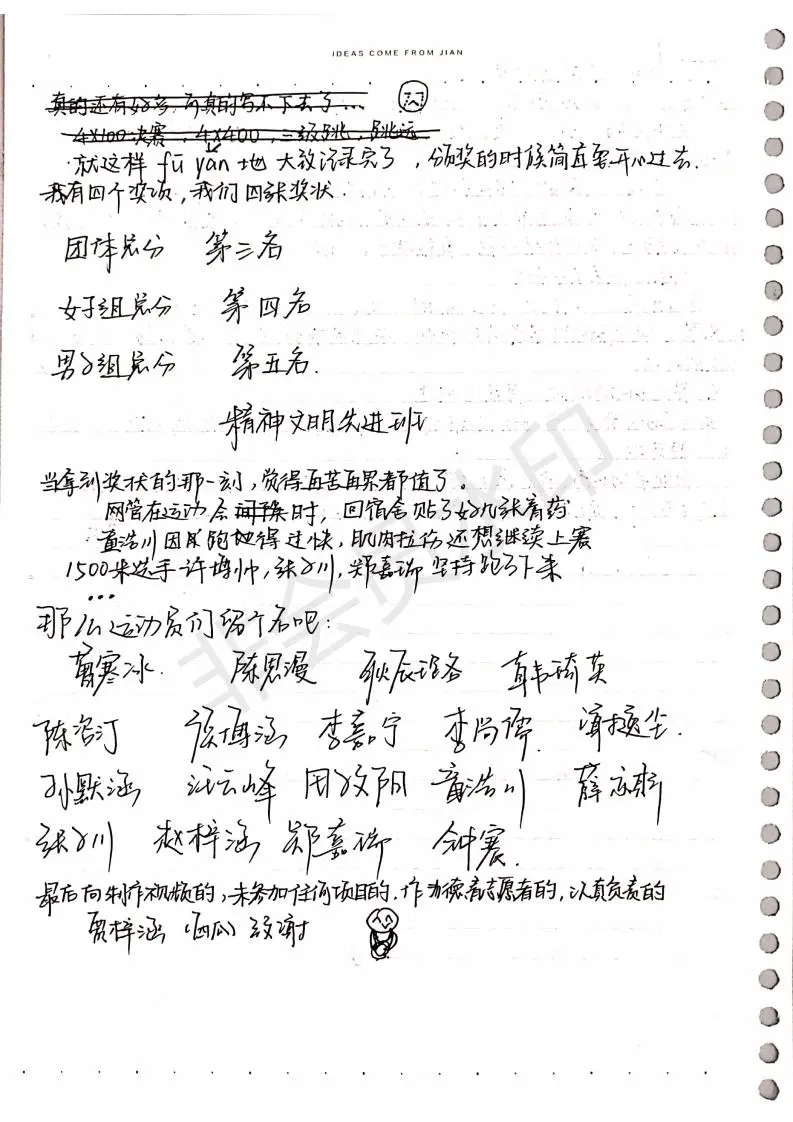 IDEAS COME FROM JIAN
真的还有好多,可真的写不下去了...
4×100决赛,4×400,三级跳,跳远
就这样 fū yǎn 地 大致记录完了,颁奖的时候简直要开心过去.
我有四个奖项,我们四张奖状.
团体总分 第三名
女子组总分 第四名
男子组总分 第五名.
精神文明先进班
当拿到奖状的那一刻,觉得再苦再累都值了。
网管在运动会 时,回宿舍贴了好几张膏药
童浩川因为跑得过快,肌肉拉伤还想继续上赛
1500米选手 许博帅,张子川,郑嘉瑞 坚持跑了下来
...
那么运动员们留个名吧:
寒冰. 陈思漫 耿辰珞 韩琦英
陈 汀 侯博涵 李嘉宁 李尚儒
孙默涵 汪云峰 周欣阳 童浩川 薛
张子川 赵梓涵 郑嘉瑞 钟震.
最后向制作视频的,未参加任何项目的,作为德育志愿者的,认真负责的
贾梓涵(西瓜)致谢
非会员水印